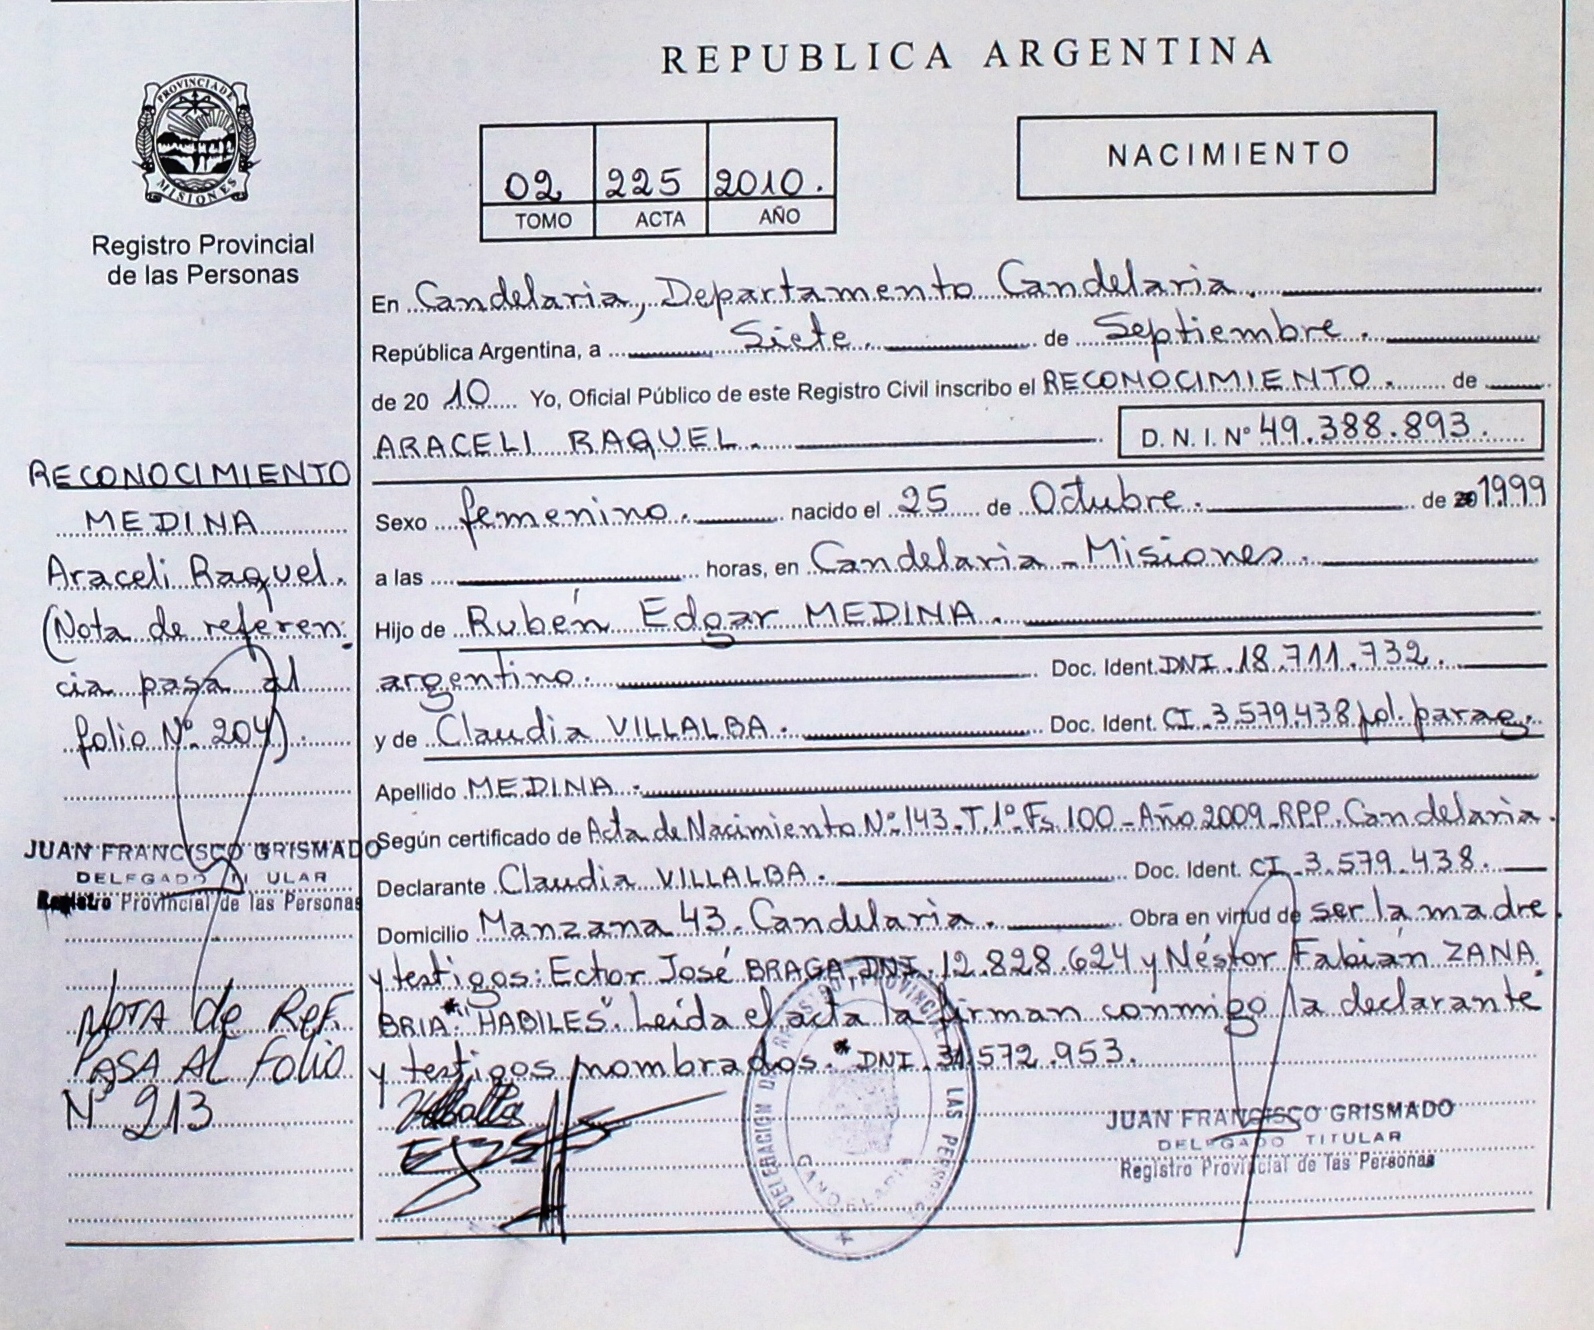 REPUBLICA ARGENTINA
PROVINCIA DE
MISIONES
Registro Provincial
de las Personas
02 225 2010.
TOMO ACTA AÑO
NACIMIENTO
En Candelaria, Departamento Candelaria.
República Argentina, a Siete. de Septiembre.
de 20 10 Yo, Oficial Público de este Registro Civil inscribo el RECONOCIMIENTO. de
ARACELI RAQUEL.
D. N. I. Nº 49.388.893.
Sexo femenino. nacido el 25 de Octubre. de 20 1999
a las horas, en Candelaria - Misiones.
Hijo de Rubén Edgar MEDINA.
argentino. Doc. Ident. DNI. 18.711.732.
y de Claudia VILLALBA. Doc. Ident. CI. 3.579.438 pol. parag.
Apellido MEDINA.
Según certificado de Acta de Nacimiento Nº 143. T. 1º Fs 100 - Año 2009 - RPP. Candelaria.
Declarante Claudia VILLALBA. Doc. Ident. CI. 3.579.438.
Domicilio Manzana 43. Candelaria. Obra en virtud de ser la madre
y testigos: Ector José BRAGA DNI. 12.828.624 y Néstor Fabián ZANA
BRIA.* "HABILES". Leída el acta la firman conmigo la declarante
y testigos nombrados. * DNI. 31.572.953.
RECONOCIMIENTO
MEDINA
Araceli Raquel.
(Nota de referen
cia pasa al
folio Nº 204).
JUAN FRANCISCO GRISMADO
DELEGADO TITULAR
Registro Provincial de las Personas
NOTA de Ref.
PASA AL folio
Nº 213
Villalba
DELEGACION DEL REGISTRO PROVINCIAL DE LAS PERSONAS
CANDELARIA
JUAN FRANCISCO GRISMADO
DELEGADO TITULAR
Registro Provincial de las Personas